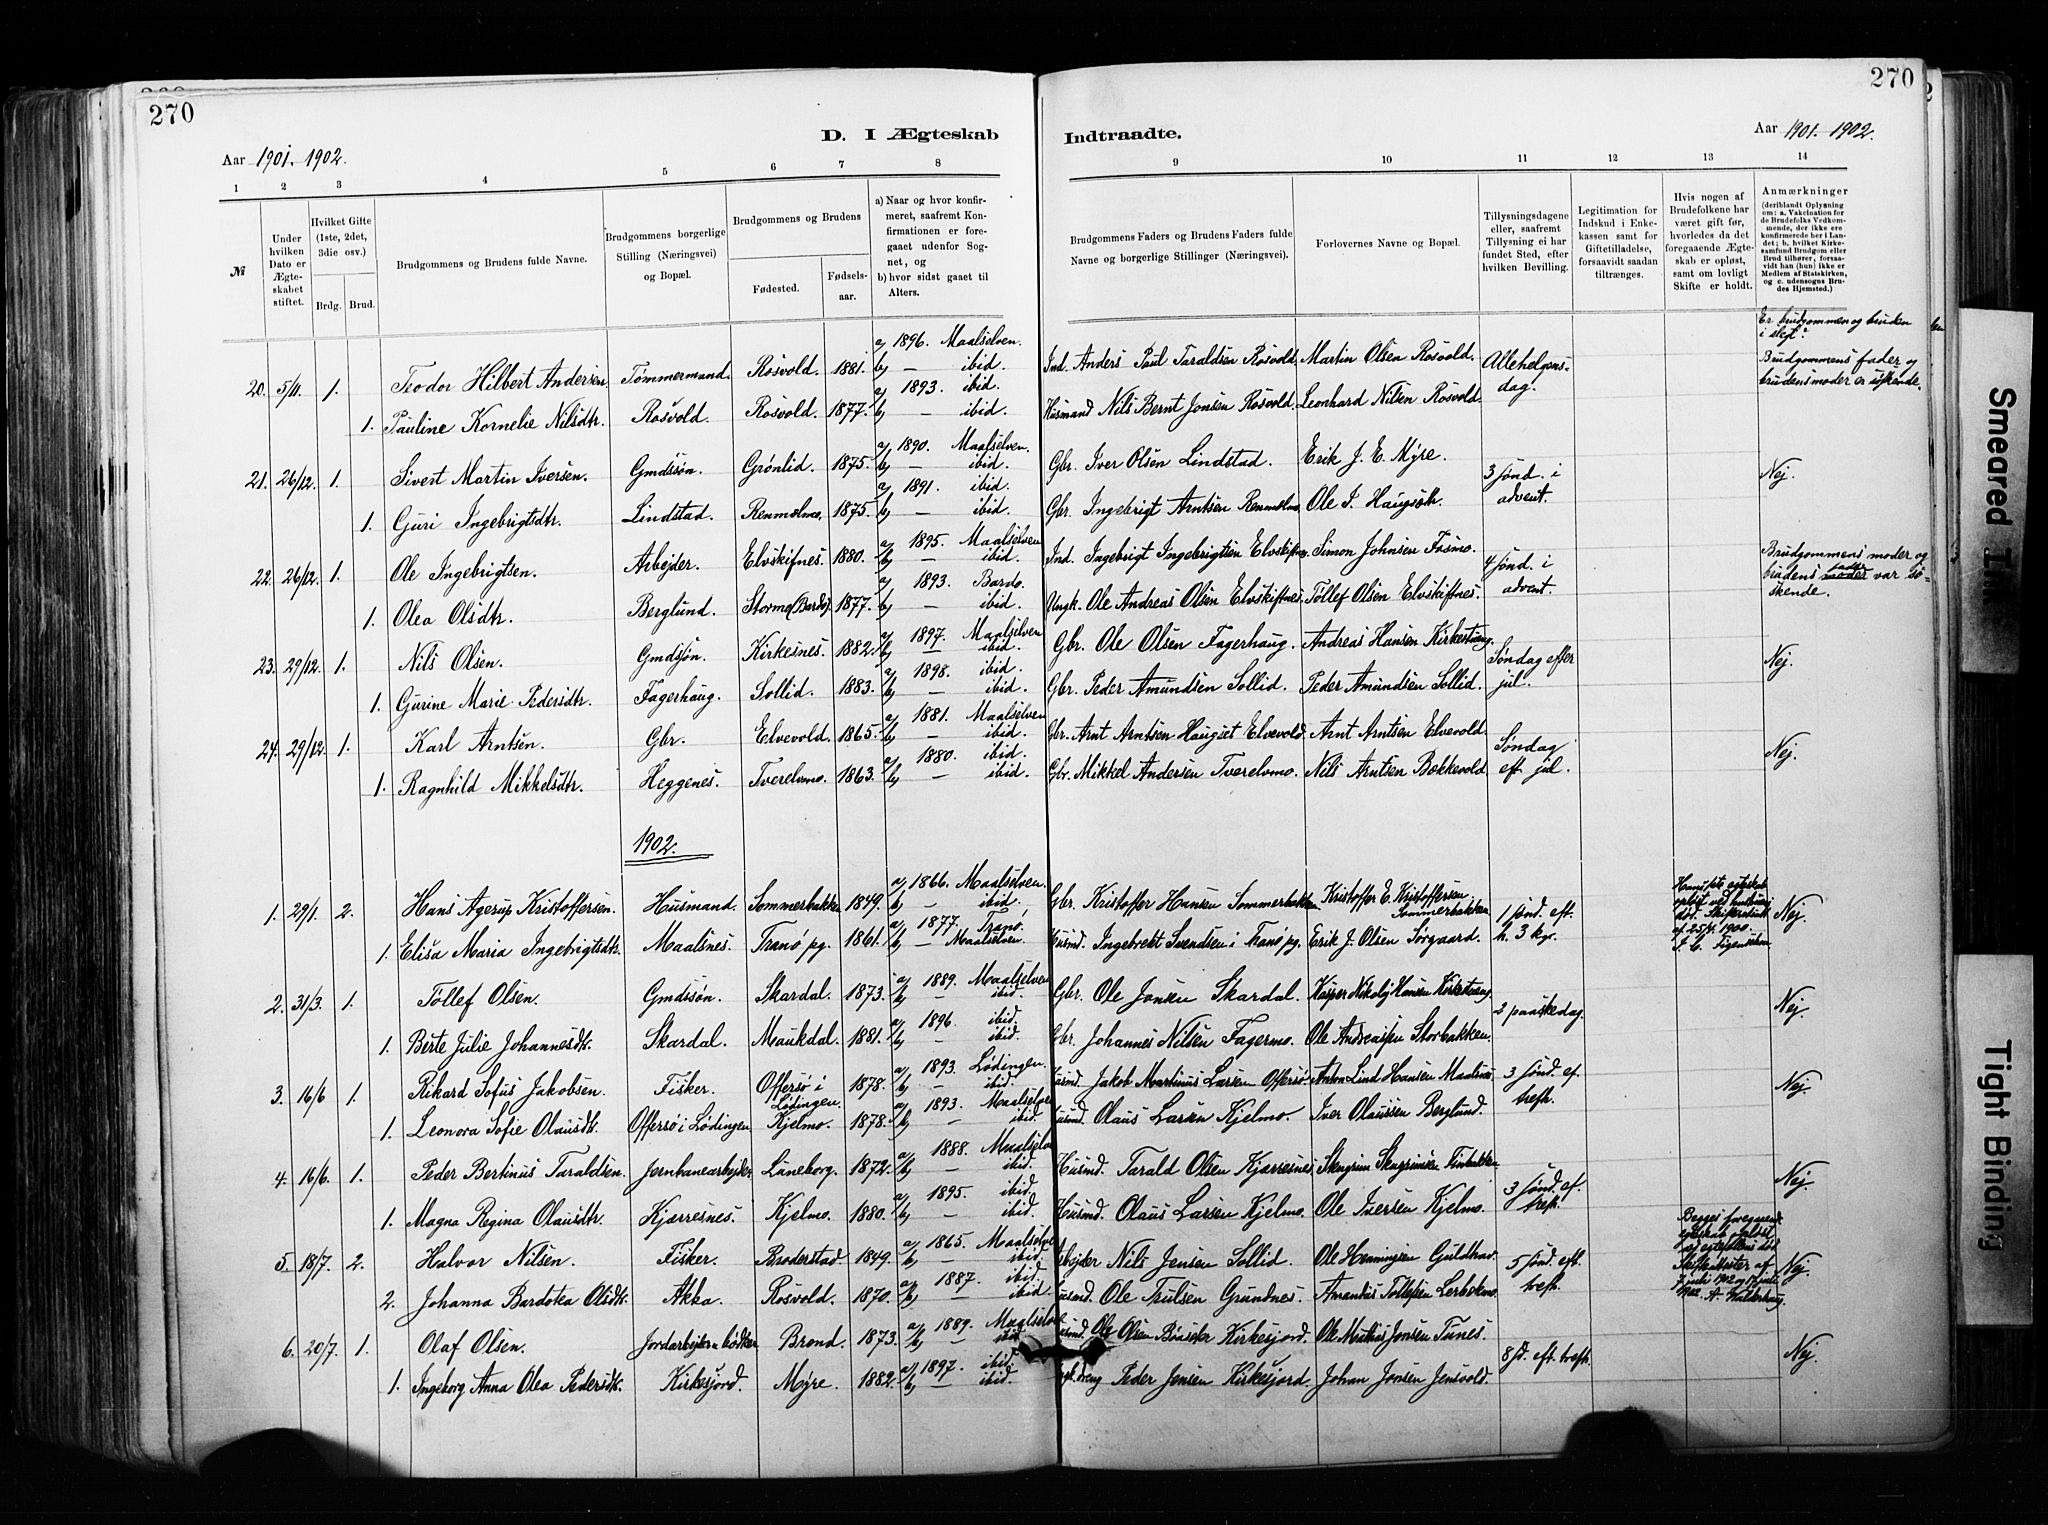 270
270
D. I Ægteskab Indtraadte.
Aar 1901. 1902.
Aar 1901. 1902.
1 2 3 4 5 6 7 8 9 10 11 12 13 14
№
Under hvilken Dato er Ægteskabet stiftet.
Hvilket Gifte (1ste, 2det, 3die osv.)
Brdg. Brud.
Brudgommens og Brudens fulde Navne.
Brudgommens borgerlige Stilling (Næringsvei) og Bopæl.
Brudgommens og Brudens
Fødested. Fødselsaar.
a) Naar og hvor konfirmeret, saafremt Konfirmationen er foregaaet udenfor Sognet, og
b) hvor sidst gaaet til Alters.
Brudgommens Faders og Brudens Faders fulde Navne og borgerlige Stillinger (Næringsvei).
Forlovernes Navne og Bopæl.
Tillysningsdagene eller, saafremt Tillysning ei har fundet Sted, efter hvilken Bevilling.
Legitimation for Indskud i Enkekassen samt for Giftetilladelse, forsaavidt saadan tiltrænges.
Hvis nogen af Brudefolkene har været gift før, hvorledes da det foregaaende Ægteskab er opløst, samt om lovligt Skifte er holdt.
Anmærkninger (deriblandt Oplysning om: a. Vakcination for de Brudefolks Vedkommende, der ikke ere konfirmerede her i Landet; b. hvilket Kirkesamfund Brudgom eller Brud tilhører, forsaavidt han (hun) ikke er Medlem af Statskirken, og c. udensogns Brudes Hjemsted.)
Er brudgommen og bruden i slegt?
20. 5/11. 1. Teodor Hilbert Andersen Tømmermand. Rosvold. 1881. a) 1896. Maalselven. b) — ibid. Ind. Anders Paul Taraldsen Rosvold. Martin Olsen Rosvold. Allehelgensdag. Brudgommens fader og brudens moder er søskende.
1. Pauline Kornelie Nilsdtr. Rosvold. Rosvold. 1877. a) 1893. ibid. b) — ibid. Husmand Nils Bernt Jonsen Rosvold. Leonhard Nilsen Rosvold.
21. 26/12. 1. Sivert Martin Iversen. Gmdssøn. Grønlid. 1875. a) 1890. Maalselven. b) — ibid. Gbr. Iver Olsen Lindstad. Erik J. E. Myre. 3 sønd. i advent. Nej.
1. Guri Ingebrigtsdtr. Lindstad. Renmælmo. 1875. a) 1891. ibid. b) — ibid. Gbr. Ingebrigt Arntsen Renmælmo. Ole I.
22. 26/12. 1. Ole Ingebrigtsen. Arbejder. Elvskifnes. 1880. a) 1895. Maalselven b) ibid. Ind. Ingebrigt Ingebrigtsen Elvskiftnes. Simon Johnsen Fosmo. 4 sønd. i advent. Brudgommens moder og brudens fader var søskende.
1. Olea Olsdtr. Berglund. Stormo (Bardo) 1877. a) 1893. Bardo. b) — ibid. Ungk. Ole Andreas Olsen Elvskiftnes. Tollef Olsen Elvskiftnes.
23. 29/12. 1. Nils Olsen. Gmdssøn. Kirkesnes. 1882. a) 1897. Maalselven b) ibid. Gbr. Ole Olsen Fagerhaug. Andreas Hansen Kirkestueng. Søndag efter jul. Nej.
1. Gurine Marie Pedersdtr. Fagerhaug. Sollid. 1883. a) 1898. ibid. b) — ibid. Gbr. Peder Amundsen Sollid. Peder Amundsen Sollid.
24. 29/12. 1. Karl Arntsen. Gbr. Elvevold. 1865. a) 1881. Maalselven b) ibid. Gbr. Arnt Arntsen Haugset Elvevold. Arnt Arntsen Elvevold. Søndag eft. jul. Nej.
1. Ragnhild Mikkelsdtr. Heggenes. Tverelvmo. 1863. a) 1880. ibid. b) — ibid. Gbr. Mikkel Andersen Tverelvmo. Nils Arntsen Bakkevold.
1902.
1. 29/1. 2. Hans Agerup Kristoffersen. Husmand. Sommerbakken 1849. a) 1866. Maalselven. b) — ibid. Gbr. Kristoffer Hansen Sommerbakken. Kristoffer E. Kristoffersen Sommerbakken. 1 sønd. eft. h. 3 kgr. Nej.
1. Elisa Maria Ingebrigtsdtr. Maalsnes. Tranø pg. 1861. a) 1877 Tranø. b) — Maalselven. Husmd. Ingebrekt Svendsen i Tranø pg. Erik J. Olsen Sørgaard.
2. 31/3. 1. Tollef Olsen. Gmdssøn. Skardal. 1873. a) 1889. Maalselven b) — ibid. Gbr. Ole Jonsen Skardal. Kasper Nikolaj Hansen 2 paaskedag. Nej.
1. Berte Julie Johannesdtr. Skardal. Maukdal. 1881. a) 1896. ibid. b) — ibid. Gbr. Johannes Nilsen Fagermo. Ole Andreassen Storbakken.
3. 16/6 1. Rikard Sofus Jakobsen. Fisker. Offersø i Lødingen. 1878. a) 1893. Lødingen b) — ibid. Husmd. Jakob Martinus Larsen Offersø. Anton Lind Hansen Maalsnes. 3 sønd. ef. trefh. Nej.
1. Leonora Sofie Olausdtr. Offersø i Lødingen. Kjelmo. 1878. a) 1893. Maalselven b) — ibid. Husmd. Olaus Larsen Kjelmo. Iver Olaussen Berglund.
4. 16/6. 1. Peder Bertinus Taraldsen. Jernbanearbejder Luneborg. 1872. a) 1888. Maalselven b) — ibid. Husmd. Tarald Olsen Kjærresnes. 3 sønd. ef. trefh. Nej.
1. Magna Regina Olausdtr. Kjærresnes. Kjelmo. 1880. a) 1895. ibid. b) — ibid. Husmd. Olaus Larsen Kjelmo. Ole Iversen Kjelmo.
5. 18/7. 2. Halvor Nilsen. Fisker. Broderstad. 1849. a) 1865. Maalselven b) — ibid. Arbejder Nils Jensen Sollid. Ole Henningsen Guldhav. 5 sønd. eft. trefh. Nej.
2. Johanna Bardoka Olsdtr. Akka. Rosvold. 1870. a) 1887. ibid. b) — ibid. Husmd. Ole Trulsen Grundnes. Amandus Tollefsen
6. 20/7. 1. Olaf Olsen. Jordarbejder Brend. 1873. a) 1889. Maalselven b) — ibid Husmd. Ole Olsen Kirkesjord. Ole Jonsen Tunes. 8 s. eft. trefh. Nej.
1. Ingeborg Anna Olea Pedersdtr. Kirkesjord. Myre. 1882. a) 1897. ibid. b) — ibid. Peder Jensen Kirkesjord. Johan Jonsen Jensvold.
Smeared Ink
Tight Binding